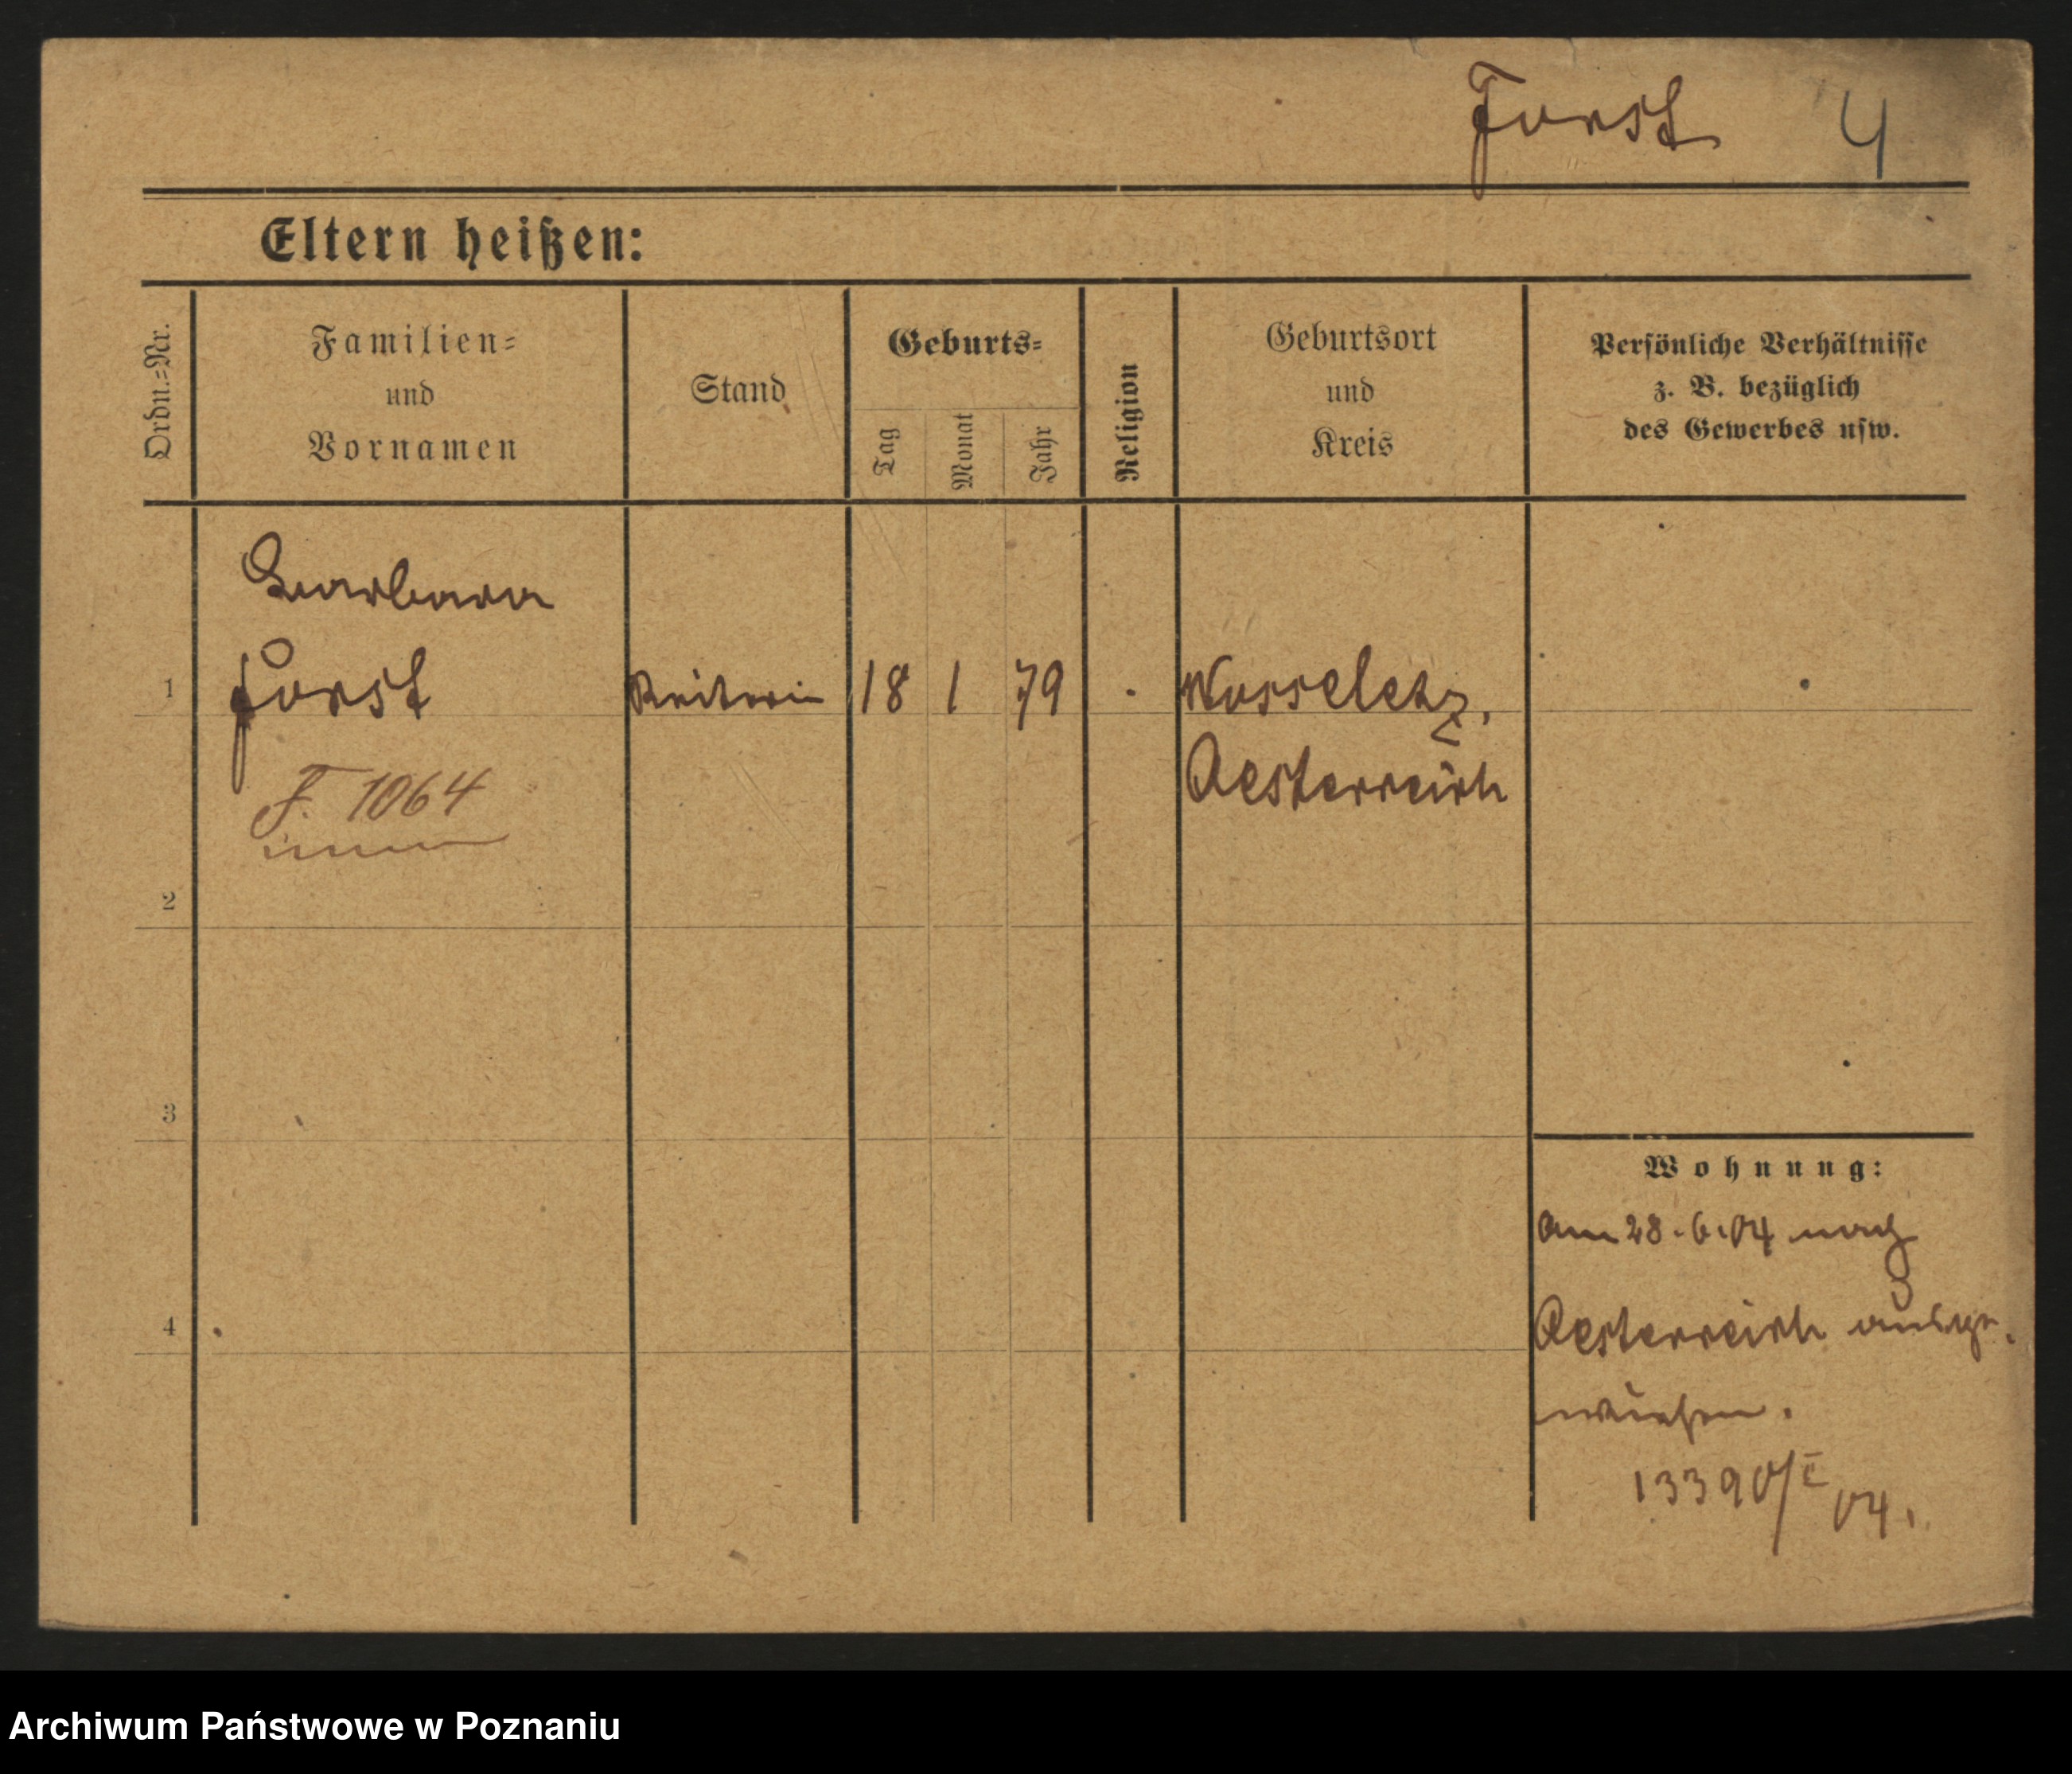 Forst 4
Eltern heißen:
Ordn.=Nr.
Familien=
und
Vornamen
Stand
Geburts=
Tag
Monat
Jahr
Religion
Geburtsort
und
Kreis
Persönliche Verhältnisse
z. B. bezüglich
des Gewerbes usw.
Barbara
1 Forst Reiterin 18 1 79 Wosseletz,
Oesterreich
F. 1064
2
3
Wohnung:
am 28.6.04 nach
4 Oesterreich ausge-
wiesen.
13390/I 04.
Archiwum Państwowe w Poznaniu